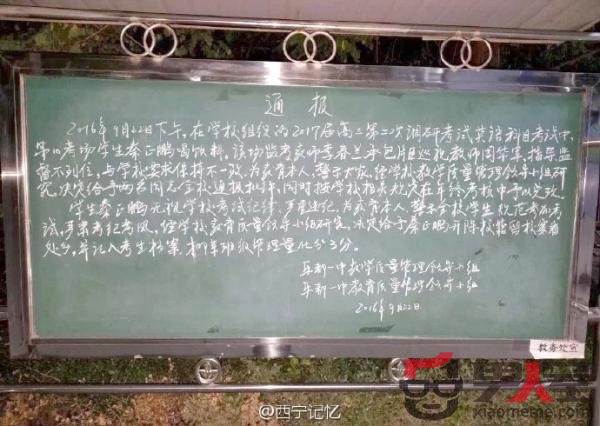 通报
2016年9月22日下午,在学校组织的2017届高三第二次调研考试英语科目考试中,
第四考场学生秦正鹏喝饮料。该场监考教师李春兰承包片区巡视教师周华军,指导监
督不到位,与学校要求保持不一致,为教育本人,警示大家,经学校教学质量管理领导小组研
究,决定给予两名同志全校通报批评,同时按学校相关规定在年终考核中予以定改。
学生秦正鹏无视学校考试纪律,严重违纪,为教育本人,警示全校学生规范参加考
试,严肃考纪考风,经学校教育质量领导小组研究,决定给予秦正鹏开除校籍留校察看
处分,并记入考生档案,扣14年班级管理量化分3分。
乐都一中教学质量管理领导小组
乐都一中教育质量管理领导小组
2016年9月22日
教务处宣
@西宁记忆
男人圣
xiaomeme.com